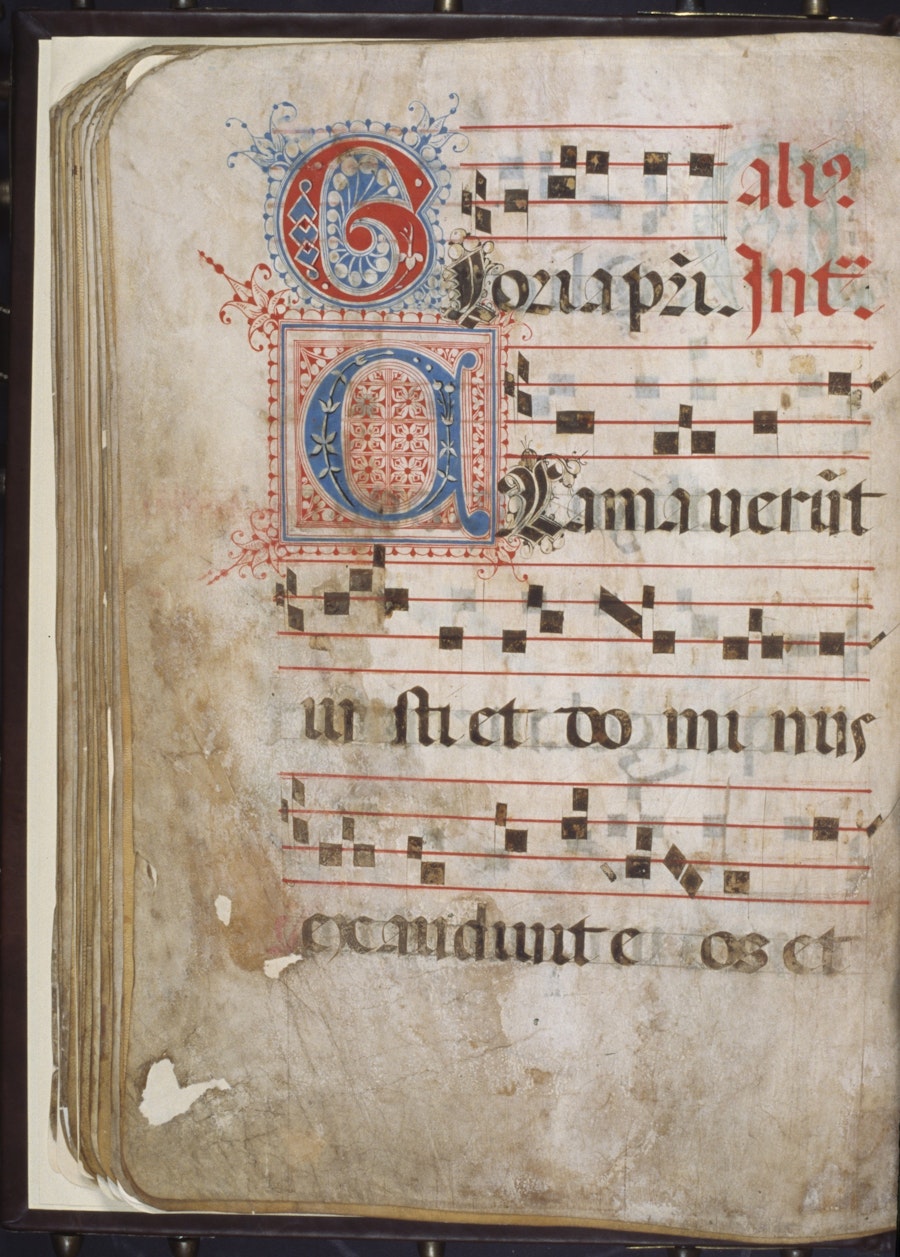 aliꝰ
Gloria pr̄i. Int̄.
Clamauerūt
iu sti et do mi nus
exaudiuit e os et